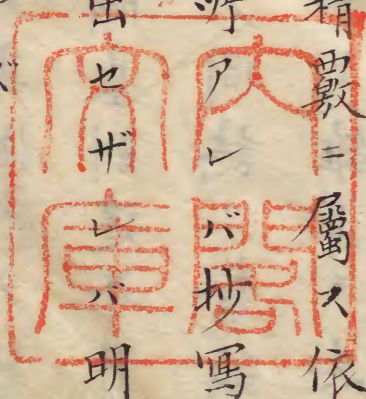 精覈ニ屬ス依
所アレバ抄寫
出セザレバ明
内閣
文庫